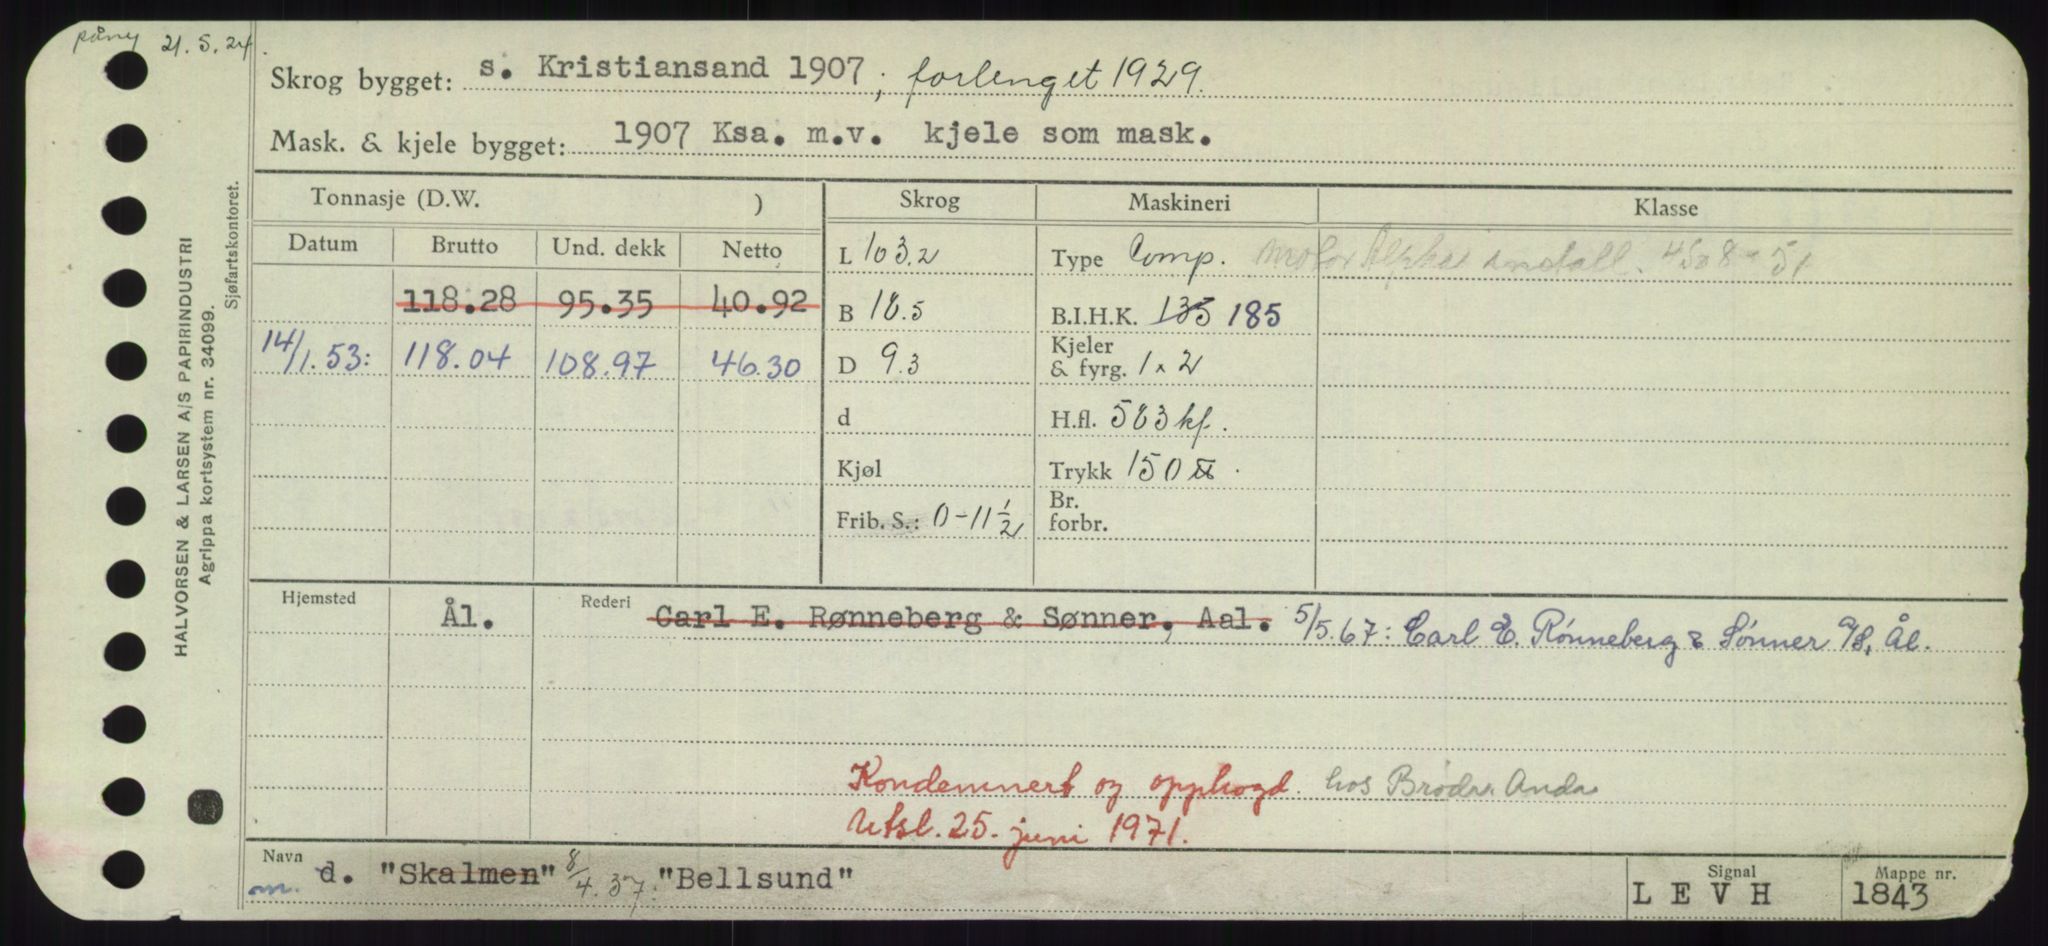 påny 21.5.24.
Skrog bygget: s. Kristiansand 1907; forlenget 1929.
Mask. & kjele bygget: 1907 Ksa. m.v. kjele som mask.
Tonnasje (D.W. ) Skrog Maskineri Klasse
Datum Brutto Und. dekk Netto L 103.2 Type Comp. Motor Alpha install. 4508-51
118.28 95.35 40.92 B 18.5 B.I.H.K. 135 185
14/1.53: 118.04 108.97 46.30 D 9.3 Kjeler & fyrg. 1 x 2
d H.fl. 583 kf.
Kjøl Trykk 150 ℔.
Frib. S.: 0-11 1/2 Br. forbr.
Hjemsted Ål. Rederi Carl E. Rønneberg & Sønner, Aal. 5/5.67: Carl E. Rønneberg & Sønner A/S, Ål.
Kondemnert og opphogd hos Brødr. Anda
Utsl. 25. juni 1971.
Navn m. d. "Skalmen" 8/4.37: "Bellsund" Signal LEVH Mappe nr. 1843
HALVORSEN & LARSEN A/S PAPIRINDUSTRI
Agrippa kortsystem nr. 34099.
Sjøfartskontoret.